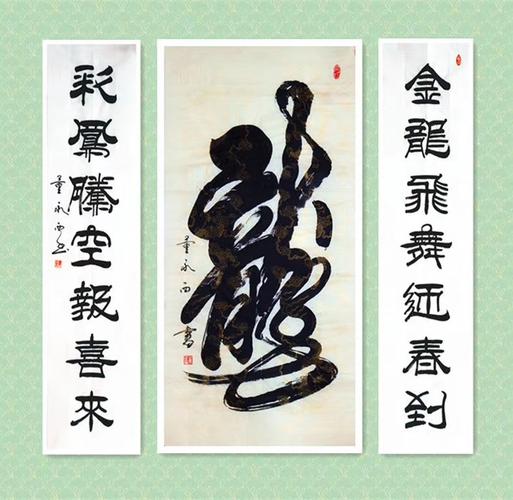 金龍飛舞迎春到
龍
董永西書
彩鳳騰空報喜來
董永西书